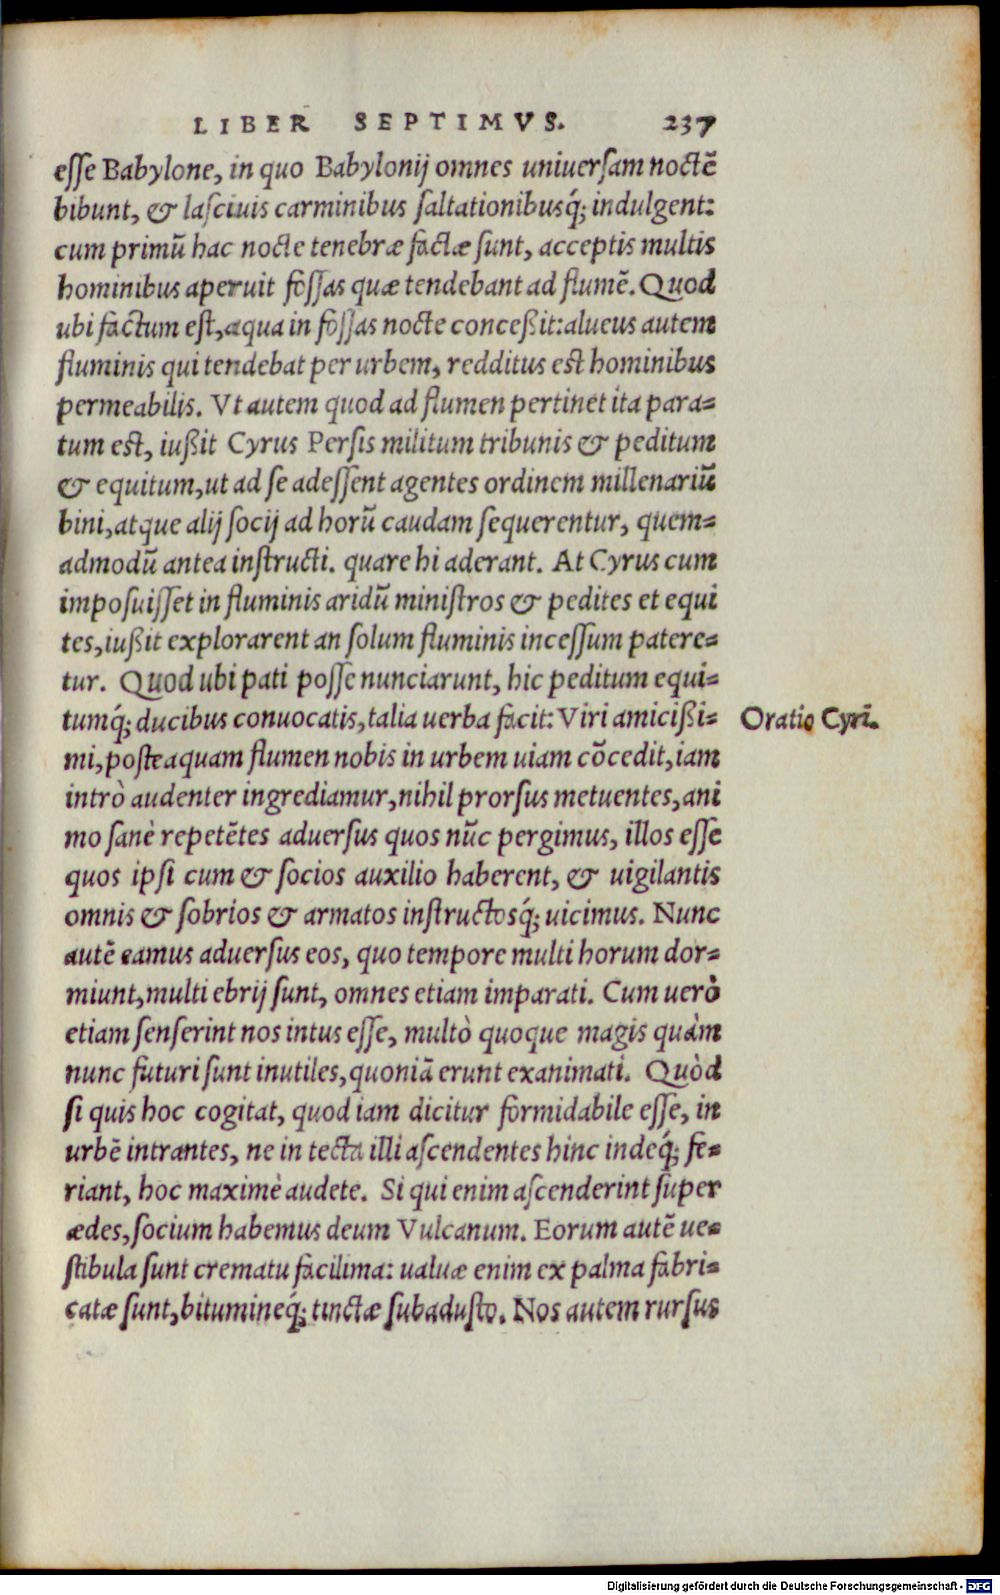 LIBER SEPTIMVS. 237
esse Babylone, in quo Babylonij omnes uniuersam noctē
bibunt, & lasciuis carminibus saltationibusq́; indulgent:
cum primū hac nocte tenebræ factæ sunt, acceptis multis
hominibus aperuit fossas quæ tendebant ad flumē. Quod
ubi factum est, aqua in fossas nocte conceßit: alueus autem
fluminis qui tendebat per urbem, redditus est hominibus
permeabilis. Vt autem quod ad flumen pertinet ita para=
tum est, iußit Cyrus Persis militum tribunis & peditum
& equitum, ut ad se adessent agentes ordinem millenariū
bini, atque alij socij ad horū caudam sequerentur, quem=
admodū antea instructi. quare hi aderant. At Cyrus cum
imposuisset in fluminis aridū ministros & pedites et equi
tes, iußit explorarent an solum fluminis incessum patere=
tur. Quod ubi pati posse nunciarunt, hic peditum equi=
tumq́; ducibus conuocatis, talia uerba facit: Viri amicißi= Oratio Cyri.
mi, posteaquam flumen nobis in urbem uiam cōcedit, iam
intrò audenter ingrediamur, nihil prorsus metuentes, ani
mo sanè repetētes aduersus quos nūc pergimus, illos esse
quos ipsi cum & socios auxilio haberent, & uigilantis
omnis & sobrios & armatos instructosq́; uicimus. Nunc
autē eamus aduersus eos, quo tempore multi horum dor=
miunt, multi ebrij sunt, omnes etiam imparati. Cum uerò
etiam senserint nos intus esse, multò quoque magis quàm
nunc futuri sunt inutiles, quoniā erunt exanimati. Quòd
si quis hoc cogitat, quod iam dicitur formidabile esse, in
urbē intrantes, ne in tecta illi ascendentes hinc indeq́; fe=
riant, hoc maximè audete. Si qui enim ascenderint super
ædes, socium habemus deum Vulcanum. Eorum autē ue=
stibula sunt crematu facilima: ualuæ enim ex palma fabri=
catæ sunt, bitumineq́; tinctæ subadusto. Nos autem rursus
Digitalisierung gefördert durch die Deutsche Forschungsgemeinschaft - DFG